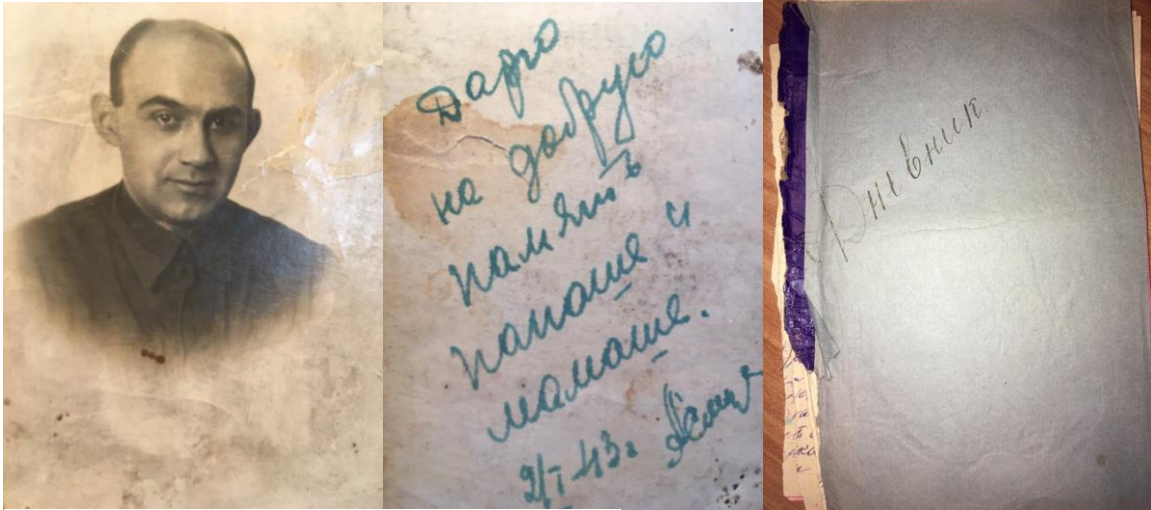 Дарю
на добрую
память
папаше и
мамаше.
2/I-43г
Дневник